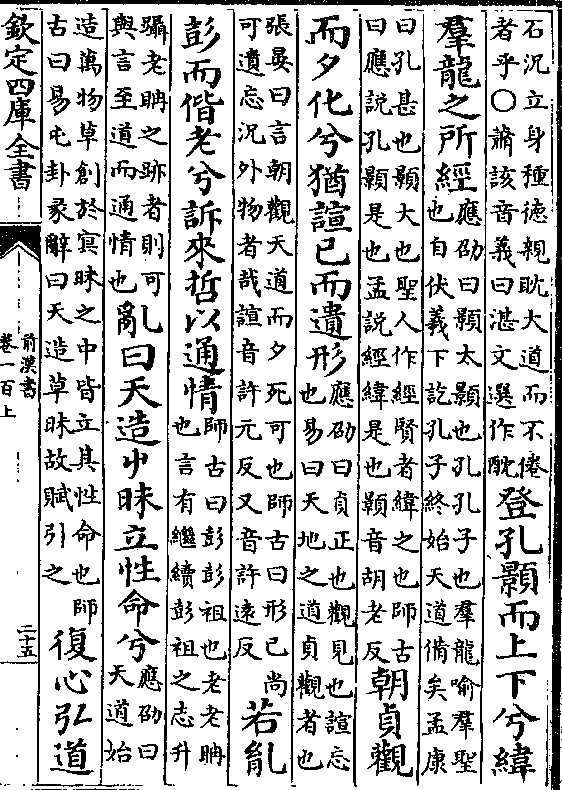 石况立身種徳親耽大道而不倦
者乎〇蕭該音義曰湛文選作酖
登孔顥而上下兮緯
羣龍之所經
應劭曰顥太顥也孔孔子也羣龍喻羣聖
也自伏羲下訖孔子終始天道備矣孟康
曰孔甚也顥大也聖人作經賢者緯之也師古
曰應説孔顥是也孟説經緯是也顥音胡老反
朝貞觀
而夕化兮猶諠已而遺形
應劭曰貞正也觀見也諠忘
也易曰天地之道貞觀者也
張晏曰言朝觀天道而夕死可也師古曰形已尚
可遺忘况外物者哉諠音許元反又音許逺反
若胤
彭而偕老兮訴來哲以通情
師古曰彭彭祖也老老聃
也言有繼續彭祖之志升
躡老聃之跡者則可
與言至道而通情也
亂曰天造屮昧立性命兮
應劭曰
天道始
造萬物草創於冥昧之中皆立其性命也師
古曰易屯卦彖辭曰天造草昧故賦引之
復心弘道
欽定四庫全書
前漢書
卷一百上
二十五